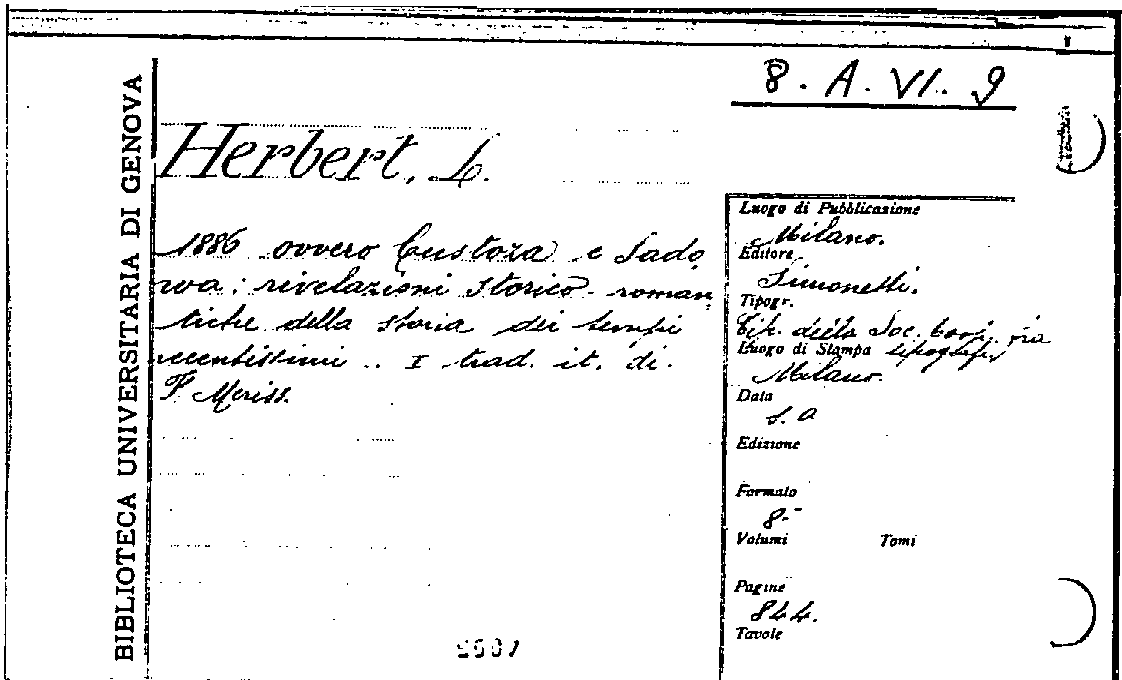 8. A. VI. 9
BIBLIOTECA UNIVERSITARIA DI GENOVA
Herbert, L.
1886 ovvero Custoza e Sado,
wa: rivelazioni storico-roman,
tiche della storia dei tempi
recentissimi .. I trad. it. di.
F. Meriss.
Luogo di Pubblicazione
Milano.
Editore
Simonetti.
Tipogr.
Tip. della Soc. Coop. fra
tipografi
Luogo di Stampa
Milano.
Data
s. a
Edizione
Formato
8-
Volumi Tomi
Pagine
844.
Tavole